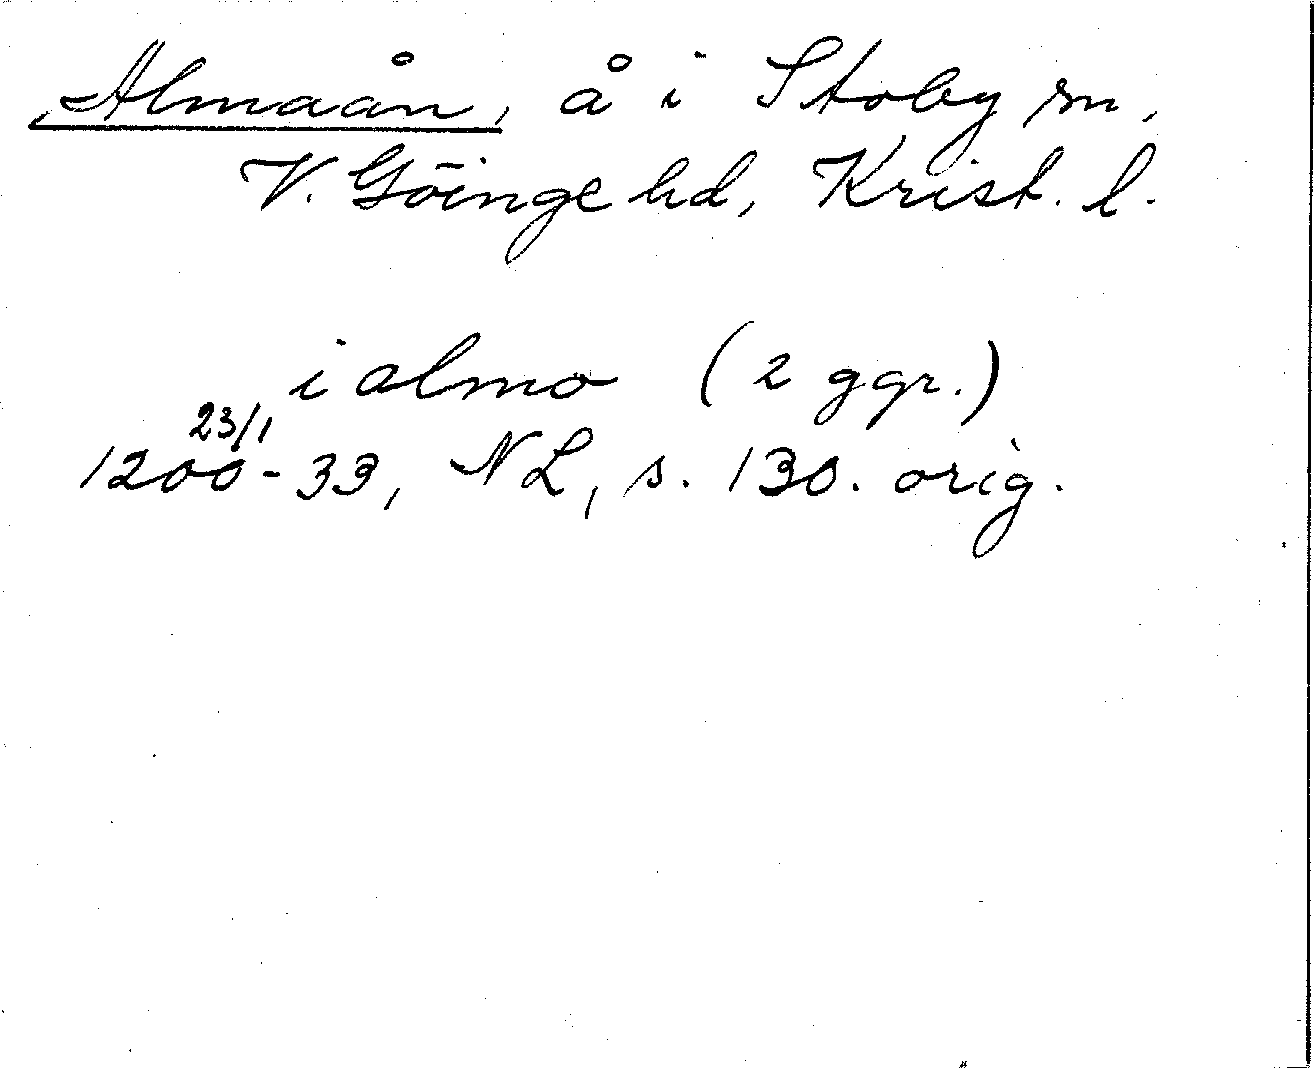 Almaån, å i Stoby sn,
V. Göinge hd, Krist. l.
i almo (2 ggr.)
23/1
1200-33, NL, s. 130. orig.